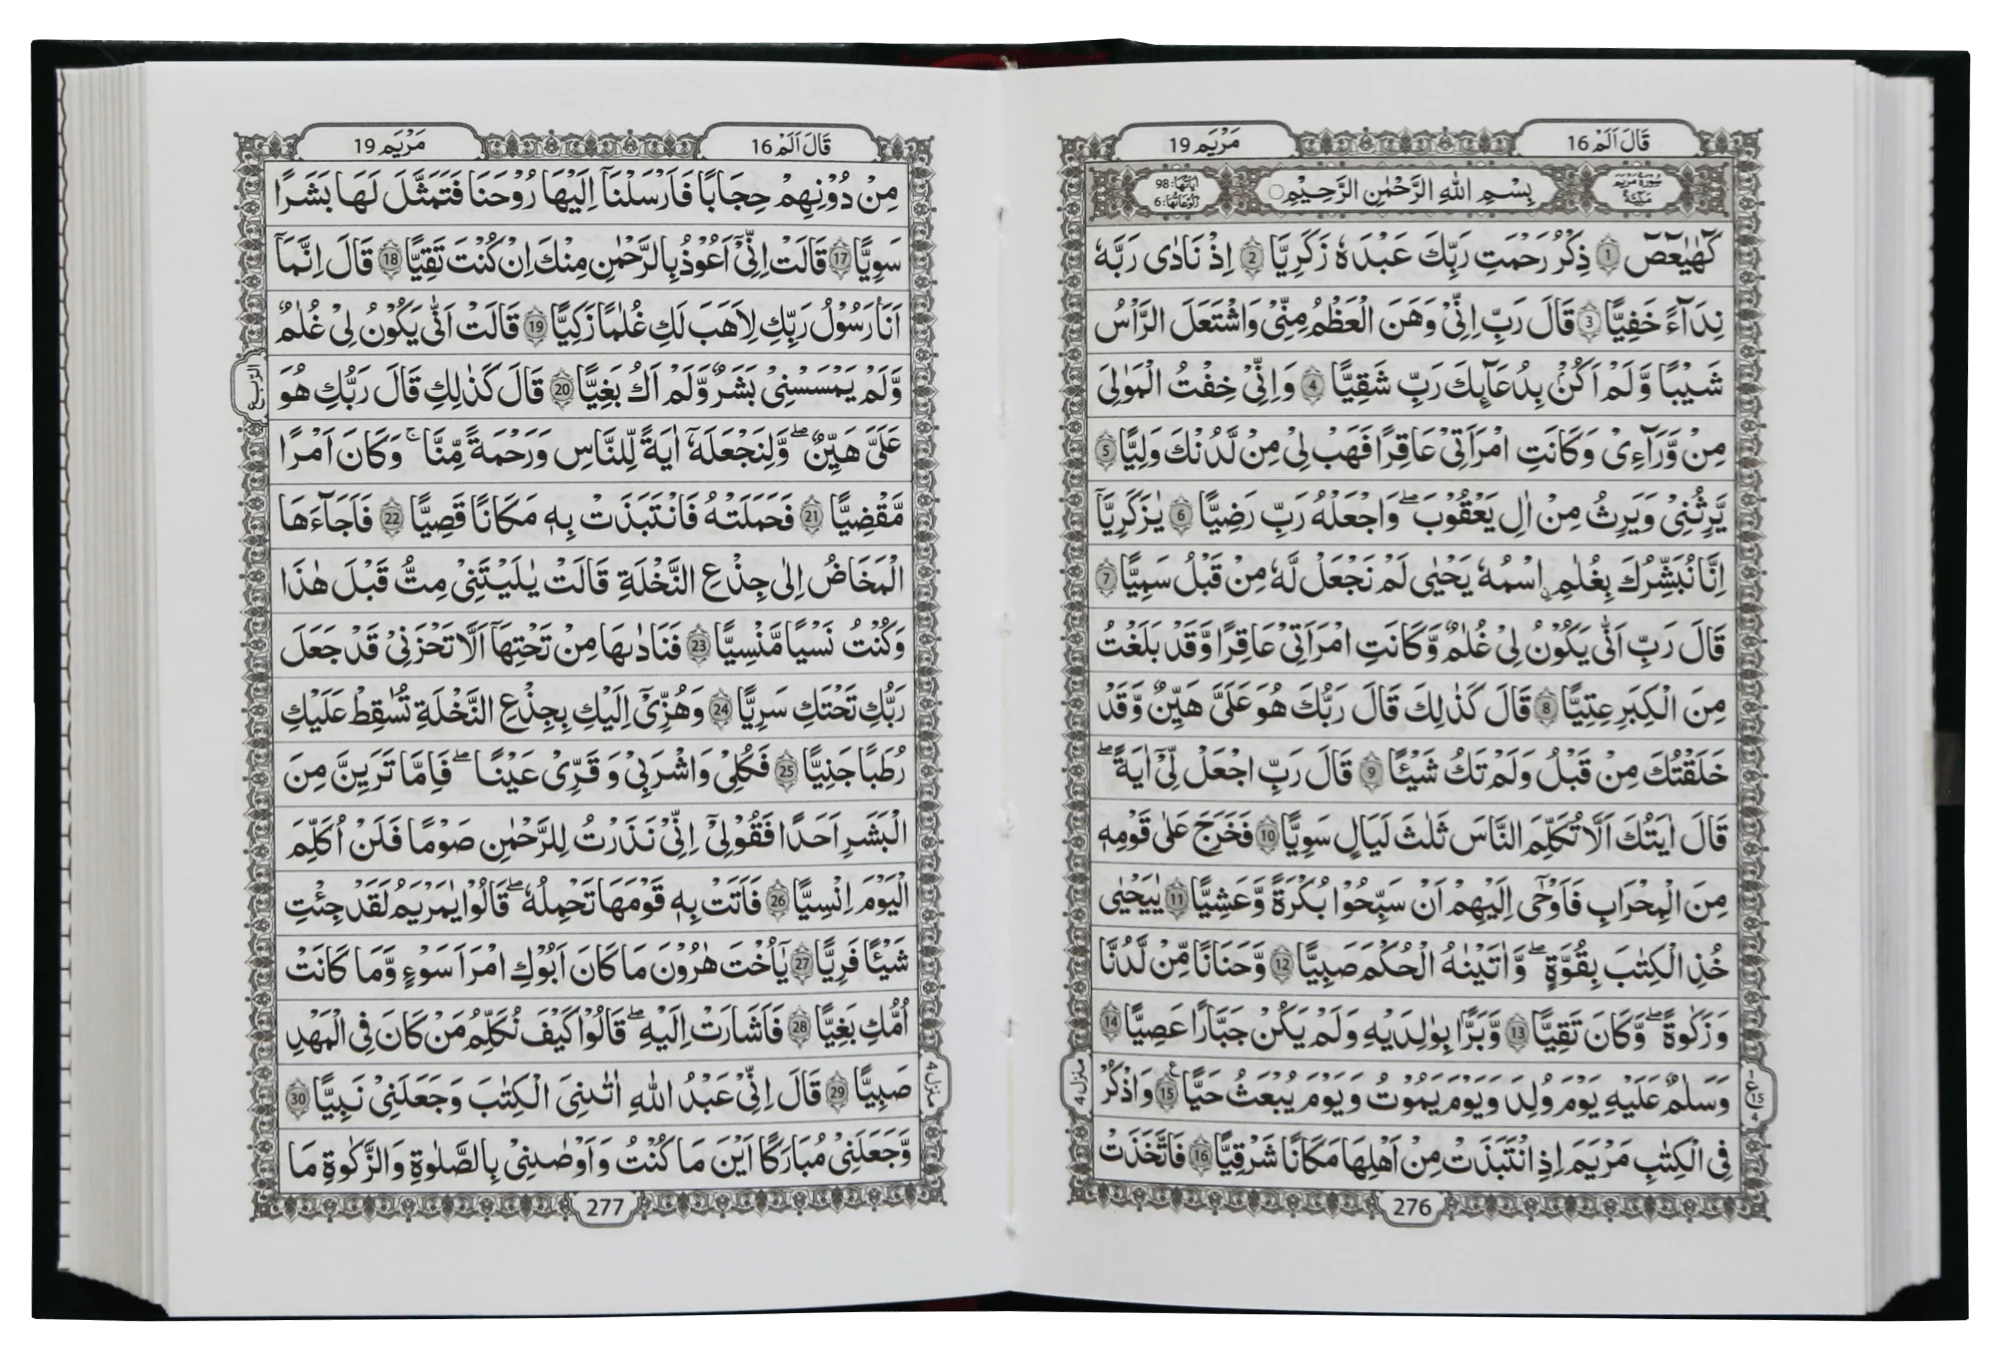 قَالَ اَلَمْ 16
مَرْيَم 19
سُوْرَةُ مَرْيَمَ مَكِّيَّةٌ
بِسْمِ اللّٰهِ الرَّحْمٰنِ الرَّحِيْمِ○
اٰيَاتُهَا: 98
رُكُوْعَاتُهَا: 6
كٓهٰيٰعٓصٓ 1 ذِكْرُ رَحْمَتِ رَبِّكَ عَبْدَهٗ زَكَرِيَّا 2 اِذْ نَادٰى رَبَّهٗ
نِدَآءً خَفِيًّا 3 قَالَ رَبِّ اِنِّىْ وَهَنَ الْعَظْمُ مِنِّىْ وَاشْتَعَلَ الرَّاْسُ
شَيْبًا وَّلَمْ اَكُنْۢ بِدُعَآئِكَ رَبِّ شَقِيًّا 4 وَاِنِّىْ خِفْتُ الْمَوَالِىَ
مِنْ وَّرَآءِىْ وَكَانَتِ امْرَاَتِىْ عَاقِرًا فَهَبْ لِىْ مِنْ لَّدُنْكَ وَلِيًّا 5
يَّرِثُنِىْ وَيَرِثُ مِنْ اٰلِ يَعْقُوْبَ ۖ وَاجْعَلْهُ رَبِّ رَضِيًّا 6 يٰزَكَرِيَّآ
اِنَّا نُبَشِّرُكَ بِغُلٰمِ ۨاسْمُهٗ يَحْيٰى لَمْ نَجْعَلْ لَّهٗ مِنْ قَبْلُ سَمِيًّا 7
قَالَ رَبِّ اَنّٰى يَكُوْنُ لِىْ غُلٰمٌ وَّكَانَتِ امْرَاَتِىْ عَاقِرًا وَّقَدْ بَلَغْتُ
مِنَ الْكِبَرِ عِتِيًّا 8 قَالَ كَذٰلِكَ قَالَ رَبُّكَ هُوَ عَلَىَّ هَيِّنٌ وَّقَدْ
خَلَقْتُكَ مِنْ قَبْلُ وَلَمْ تَكُ شَيْئًا 9 قَالَ رَبِّ اجْعَلْ لِّىْٓ اٰيَةً ۖ
قَالَ اٰيَتُكَ اَلَّا تُكَلِّمَ النَّاسَ ثَلٰثَ لَيَالٍ سَوِيًّا 10 فَخَرَجَ عَلٰى قَوْمِهٖ
مِنَ الْمِحْرَابِ فَاَوْحٰٓى اِلَيْهِمْ اَنْ سَبِّحُوْا بُكْرَةً وَّعَشِيًّا 11 يٰيَحْيٰى
خُذِ الْكِتٰبَ بِقُوَّةٍ ۖ وَّاٰتَيْنٰهُ الْحُكْمَ صَبِيًّا 12 وَّحَنَانًا مِّنْ لَّدُنَّا
وَزَكٰوةً ۖ وَّكَانَ تَقِيًّا 13 وَّبَرًّا بِوَالِدَيْهِ وَلَمْ يَكُنْ جَبَّارًا عَصِيًّا 14
وَسَلٰمٌ عَلَيْهِ يَوْمَ وُلِدَ وَيَوْمَ يَمُوْتُ وَيَوْمَ يُبْعَثُ حَيًّا ع 15 وَاذْكُرْ
فِى الْكِتٰبِ مَرْيَمَ اِذِ انْتَبَذَتْ مِنْ اَهْلِهَا مَكَانًا شَرْقِيًّا 16 فَاتَّخَذَتْ
1 ع 15 4
منزل 4
276
قَالَ اَلَمْ 16
مَرْيَم 19
مِنْ دُوْنِهِمْ حِجَابًا فَاَرْسَلْنَآ اِلَيْهَا رُوْحَنَا فَتَمَثَّلَ لَهَا بَشَرًا
سَوِيًّا 17 قَالَتْ اِنِّىْٓ اَعُوْذُ بِالرَّحْمٰنِ مِنْكَ اِنْ كُنْتَ تَقِيًّا 18 قَالَ اِنَّمَآ
اَنَا رَسُوْلُ رَبِّكِ لِاَهَبَ لَكِ غُلٰمًا زَكِيًّا 19 قَالَتْ اَنّٰى يَكُوْنُ لِىْ غُلٰمٌ
وَّلَمْ يَمْسَسْنِىْ بَشَرٌ وَّلَمْ اَكُ بَغِيًّا 20 قَالَ كَذٰلِكِ قَالَ رَبُّكِ هُوَ
عَلَىَّ هَيِّنٌ ۖ وَّلِنَجْعَلَهٗٓ اٰيَةً لِّلنَّاسِ وَرَحْمَةً مِّنَّا ۚ وَكَانَ اَمْرًا
مَّقْضِيًّا 21 فَحَمَلَتْهُ فَانْتَبَذَتْ بِهٖ مَكَانًا قَصِيًّا 22 فَاَجَآءَهَا
الْمَخَاضُ اِلٰى جِذْعِ النَّخْلَةِ قَالَتْ يٰلَيْتَنِىْ مِتُّ قَبْلَ هٰذَا
وَكُنْتُ نَسْيًا مَّنْسِيًّا 23 فَنَادٰىهَا مِنْ تَحْتِهَآ اَلَّا تَحْزَنِىْ قَدْ جَعَلَ
رَبُّكِ تَحْتَكِ سَرِيًّا 24 وَهُزِّىْٓ اِلَيْكِ بِجِذْعِ النَّخْلَةِ تُسٰقِطْ عَلَيْكِ
رُطَبًا جَنِيًّا 25 فَكُلِىْ وَاشْرَبِىْ وَقَرِّىْ عَيْنًا ۖ فَاِمَّا تَرَيِنَّ مِنَ
الْبَشَرِ اَحَدًا فَقُوْلِىْٓ اِنِّىْ نَذَرْتُ لِلرَّحْمٰنِ صَوْمًا فَلَنْ اُكَلِّمَ
الْيَوْمَ اِنْسِيًّا 26 فَاَتَتْ بِهٖ قَوْمَهَا تَحْمِلُهٗ ۖ قَالُوْا يٰمَرْيَمُ لَقَدْ جِئْتِ
شَيْئًا فَرِيًّا 27 يٰٓاُخْتَ هٰرُوْنَ مَا كَانَ اَبُوْكِ امْرَاَ سَوْءٍ وَّمَا كَانَتْ
اُمُّكِ بَغِيًّا 28 فَاَشَارَتْ اِلَيْهِ ۖ قَالُوْا كَيْفَ نُكَلِّمُ مَنْ كَانَ فِى الْمَهْدِ
صَبِيًّا 29 قَالَ اِنِّىْ عَبْدُ اللّٰهِ اٰتٰىنِىَ الْكِتٰبَ وَجَعَلَنِىْ نَبِيًّا 30
وَّجَعَلَنِىْ مُبَارَكًا اَيْنَ مَا كُنْتُ وَاَوْصٰىنِىْ بِالصَّلٰوةِ وَالزَّكٰوةِ مَا
الرّبع
منزل 4
277